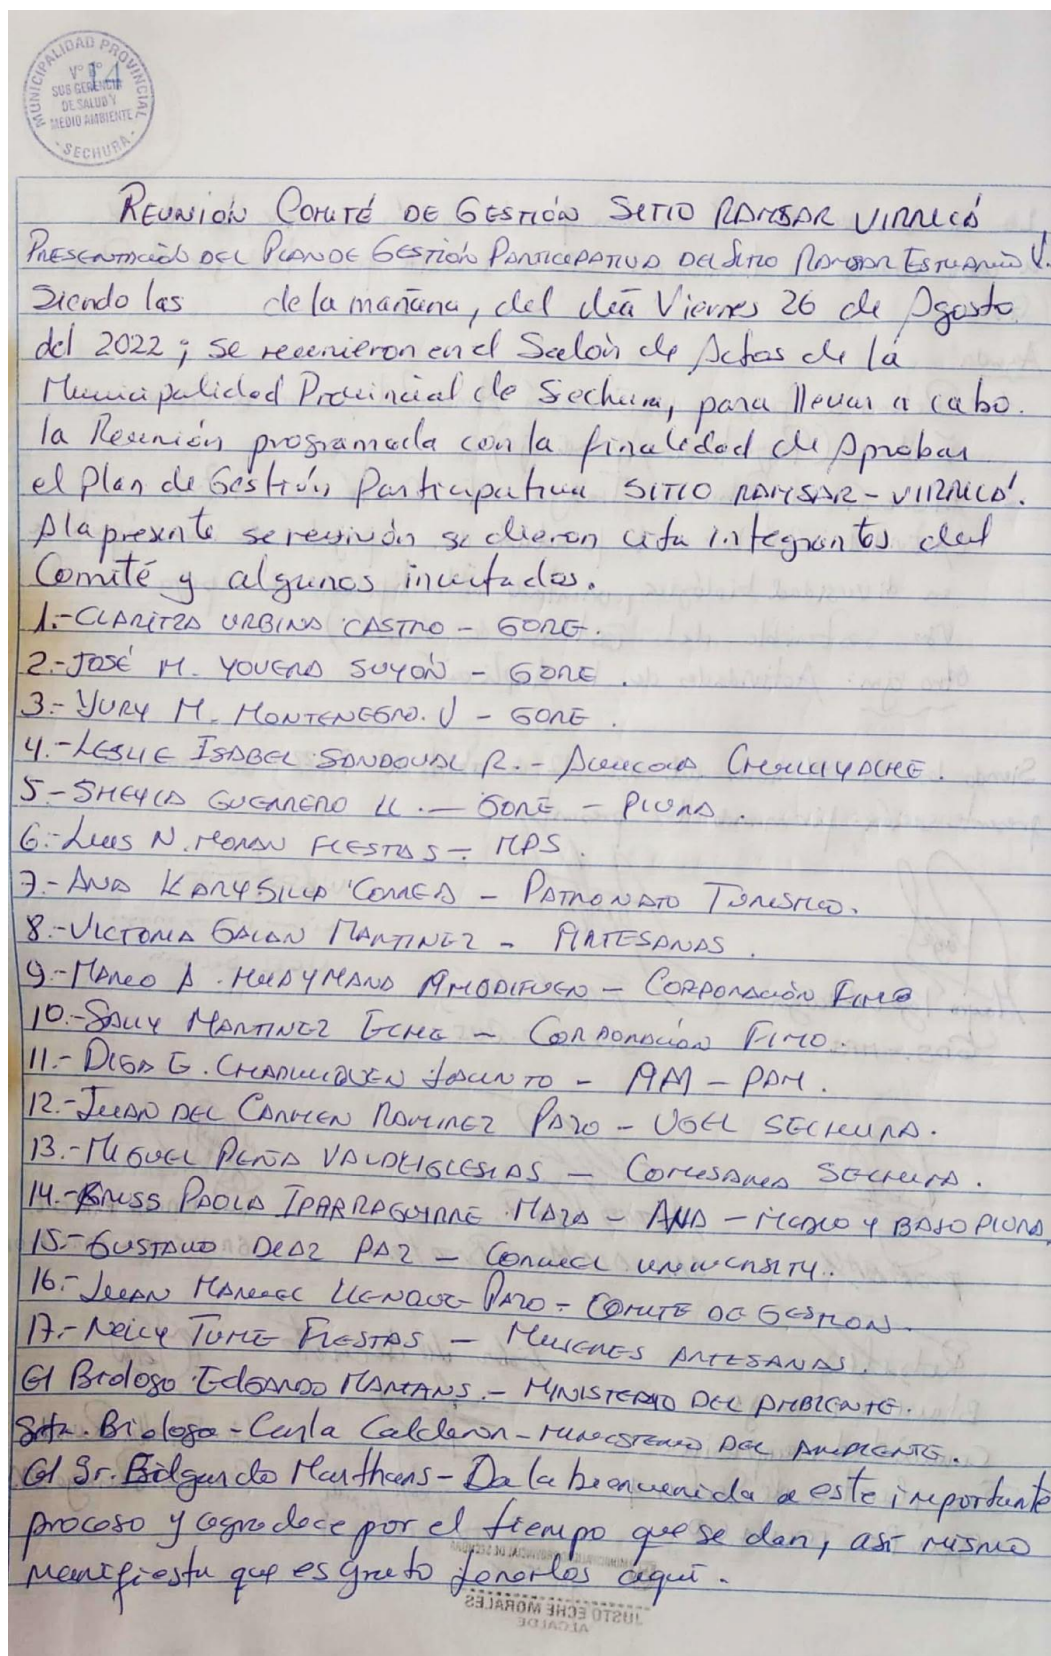 MUNICIPALIDAD PROVINCIAL
V° B°
14
SUB GERENCIA
DE SALUD Y
MEDIO AMBIENTE
SECHURA
REUNIÓN COMITÉ DE GESTIÓN SITIO RAMSAR VIRRILÁ
PRESENTACIÓN DEL PLAN DE GESTIÓN PARTICIPATIVA DEL SITIO RAMSAR ESTUARIO V.
Siendo las de la mañana, del día Viernes 26 de Agosto
del 2022; se reunieron en el Salón de Actos de la
Municipalidad Provincial de Sechura, para llevar a cabo
la Reunión programada con la finalidad de Aprobar
el Plan de Gestión Participativa SITIO RAMSAR-VIRRILÁ.
A la presente se reunión se dieron cita integrantes del
Comité y algunos invitados.
1.- CLARITZA URBINA CASTRO - GORE.
2.- JOSÉ M. YOVERA SUYÓN - GORE.
3.- YURY M. MONTENEGRO. V - GORE.
4.- LESLIE ISABEL SANDOVAL R. - CHULLIYACHE.
5.- SHEYLA GUERRERO U. - GORE - PIURA.
6.- LUIS N. MORAN FIESTAS - MPS.
7.- ANA KARY SILLA CORREA - PATRONATO TURISTICO.
8.- VICTORIA GALAN MARTINEZ - ARTESANAS.
9.- MARCO A. HUAYMANA - CORPORACIÓN FIMO
10.- SALLY MARTINEZ ECHE - CORPORACIÓN FIMO.
11.- E. JACINTO - PAM.
12.- JUAN DEL CARMEN RAMIREZ PAZO - UGEL SECHURA.
13.- MIGUEL PEÑA VALDEIGLESIAS - COMISARIA SECHURA.
14.- PAOLA IPARRAGUIRRE MAZA - ANA - MEDIO Y BAJO PIURA.
15.- GUSTAVO DIAZ PAZ - CORNELL UNIVERSITY.
16.- JUAN MANUEL LLENQUE PAZO - COMITE DE GESTION.
17.- NEILY TUME FIESTAS - MUJERES ARTESANAS.
El Biologo EDGARDO MARTANS. - MINISTERIO DEL AMBIENTE.
Srta. Biologa - Carla Calderon - MINISTERIO DEL AMBIENTE.
El Sr. Edgardo Marthans - Da la bienvenida a este importante
proceso y agradece por el tiempo que se dan, así mismo
manifiesta que es grato tenerlos aquí.
JUSTO ECHE MORALES
ALCALDE